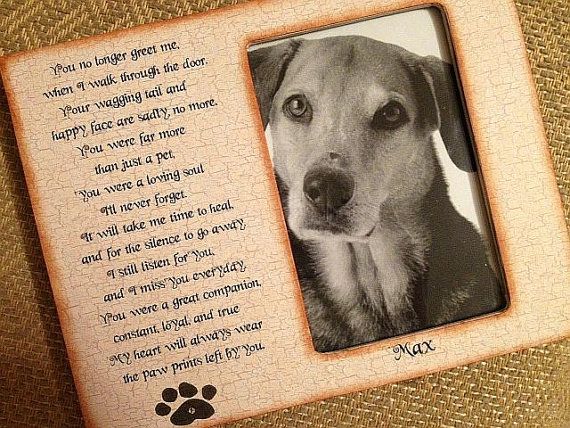 You no longer greet me,
when I walk through the door.
Your wagging tail and
happy face are sadly no more.
You were far more
than just a pet,
You were a loving soul
I'll never forget.
It will take me time to heal,
and for the silence to go away.
I still listen for you,
and I miss you everyday.
You were a great companion,
constant, loyal, and true
My heart will always wear
the paw prints left by you.
Max